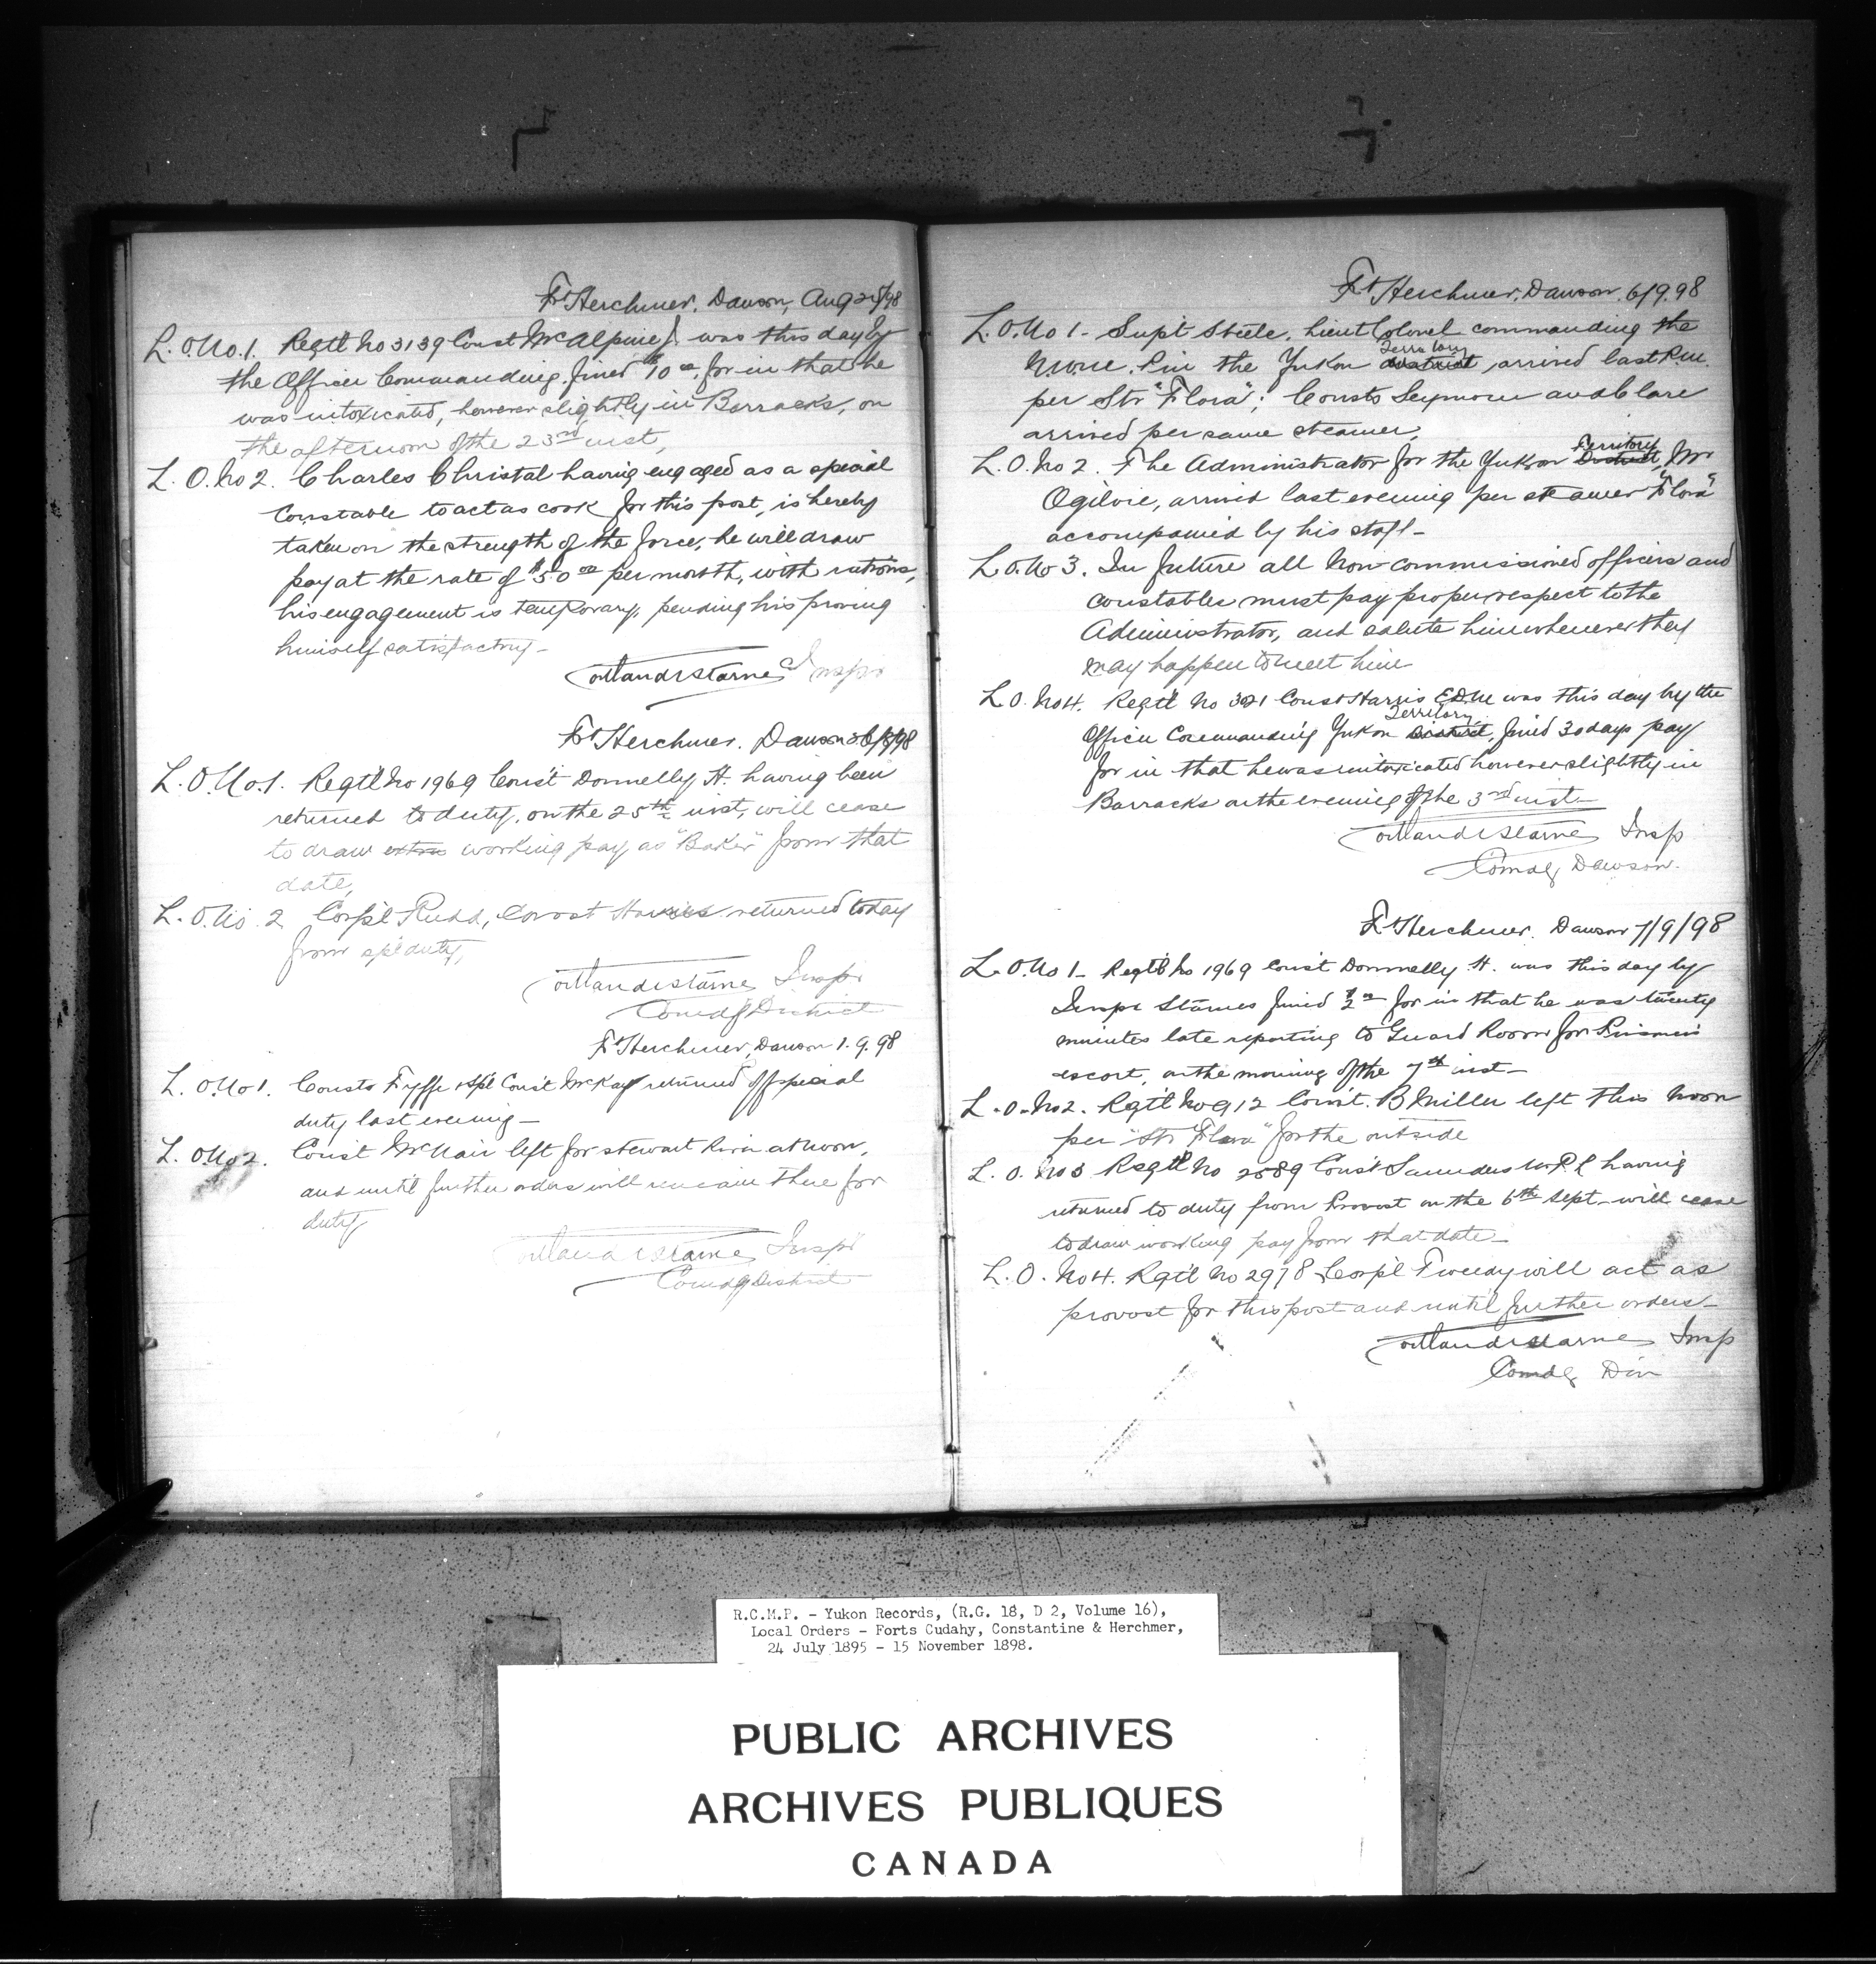 Ft Herchmer, Dawson, Aug 25/98
L. O. No. 1. Regt'l No 3139 Const McAlpine J. was this day by
the Officer Commanding, fined $10 00, for in that he
was intoxicated, however slightly in Barracks, on
the afternoon of the 23rd inst,
L. O. No 2. Charles Christal having engaged as a special
Constable to act as cook for this post, is hereby
taken on the strength of the force, he will draw
pay at the rate of $50 00 per month, with rations,
his engagement is temporary, pending his proving
himself satisfactory -
Cortlandt Starnes Inspr
Ft Herchmer. Dawson /8/98
L. O. No. 1. Regt'l No 1969 Const Donnelly, H. having been
returned to duty, on the 25th inst, will cease
to draw extra working pay as "Baker" from that
date,
L. O. No. 2 Corp'l Rudd, Const Harris returned today
from sp'l duty,
Cortlandt Starnes Inspr
Comdg District
Ft Herchmer, Dawson 1. 9. 98
L. O. No 1. Consts Fyffe & Sp'l Const McKay returned off special
duty last evening -
L. O. No 2. Const McNair left for Stewart River at noon,
and until further orders will remain there for
duty
Cortlandt Starnes Inspr
Comdg District
Ft Herchmer, Dawson. 6/9. 98
L. O. No 1 - Sup't Steele, Lieut Colonel commanding the
Territory
N.W.M.P. in the Yukon District, arrived last P.M.
per Str "Flora"; Consts Seymour and Clare
arrived per same steamer,
Territory
L. O. No 2. The Administrator for the Yukon District, Mr
Ogilvie, arrived last evening per steamer "Flora"
accompanied by his staff -
L. O. No 3. In future all Non-commissioned officers and
constables must pay proper respect to the
Administrator, and salute him whenever they
may happen to meet him
L. O. No 4. Regt'l No Const Harris E.D.M was this day by the
Territory
Officer Commanding Yukon District, fined 30 days pay
for in that he was intoxicated however slightly in
Barracks on the evening of the 3rd inst -
Cortlandt Starnes Insp
Comdg Dawson.
Ft Herchmer. Dawson 7/9/98
L. O. No 1 - Regt'l No 1969 Const Donnelly H. was this day by
Inspr Starnes fined $2 00 for in that he was twenty
minutes late reporting to Guard Room for Prisoners
escort, on the morning of the 7th inst -
L. O. No 2. Rgt'l No 912 Const. B Miller left this noon
per "Str Flora" for the outside
L. O. No 3 Regt'l No 2589 Const Saunders having
returned to duty from Provost on the 6th Sept - will cease
to draw working pay from that date -
L. O. No 4. Rgt'l No 2978 Corp'l Tweedy will act as
provost for this post and until further orders -
Cortlandt Starnes Insp
Comdg Div
R.C.M.P. - Yukon Records, (R.G. 18, D 2, Volume 16),
Local Orders - Forts Cudahy, Constantine & Herchmer,
24 July 1895 - 15 November 1898.
PUBLIC ARCHIVES
ARCHIVES PUBLIQUES
CANADA